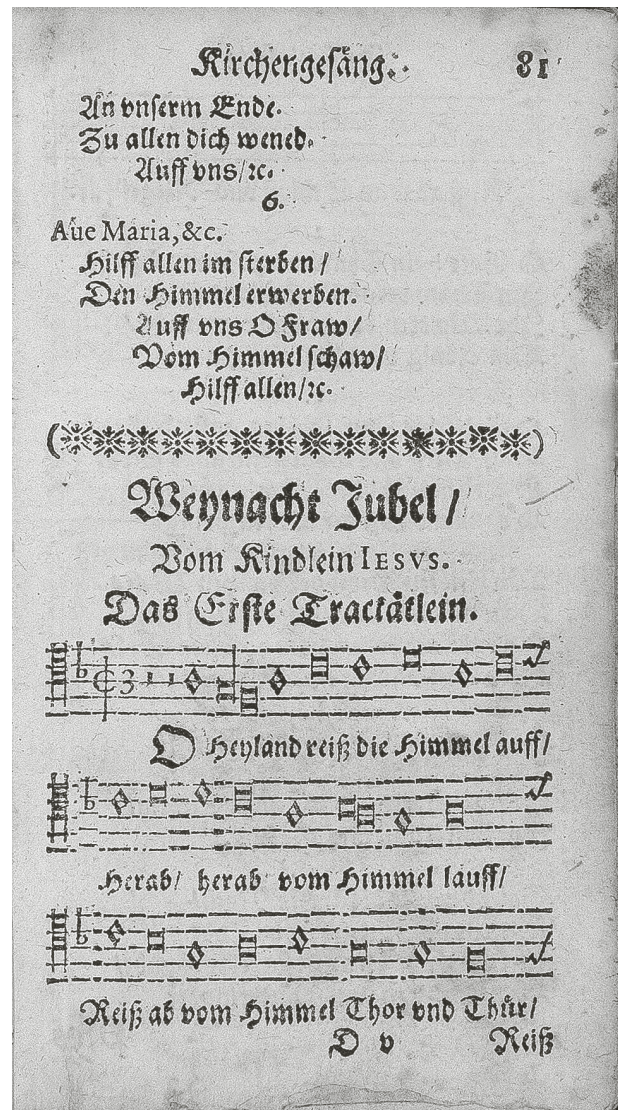 Kirchengesäng. 81
An vnserm Ende.
Zu allen dich wened.
Auff vns/ꝛc.
6.
Aue Maria,&c.
Hilff allen im sterben /
Den Himmel erwerben.
Auff vns O Fraw/
Vom Himmel schaw/
Hilff allen/ꝛc.
Weynacht Jubel /
Vom Kindlein IESVS.
Das Erste Tractätlein.
O Heyland reiß die Himmel auff/
Herab/ herab vom Himmel lauff/
Reiß ab vom Himmel Thor vnd Thür/
D v Reiß